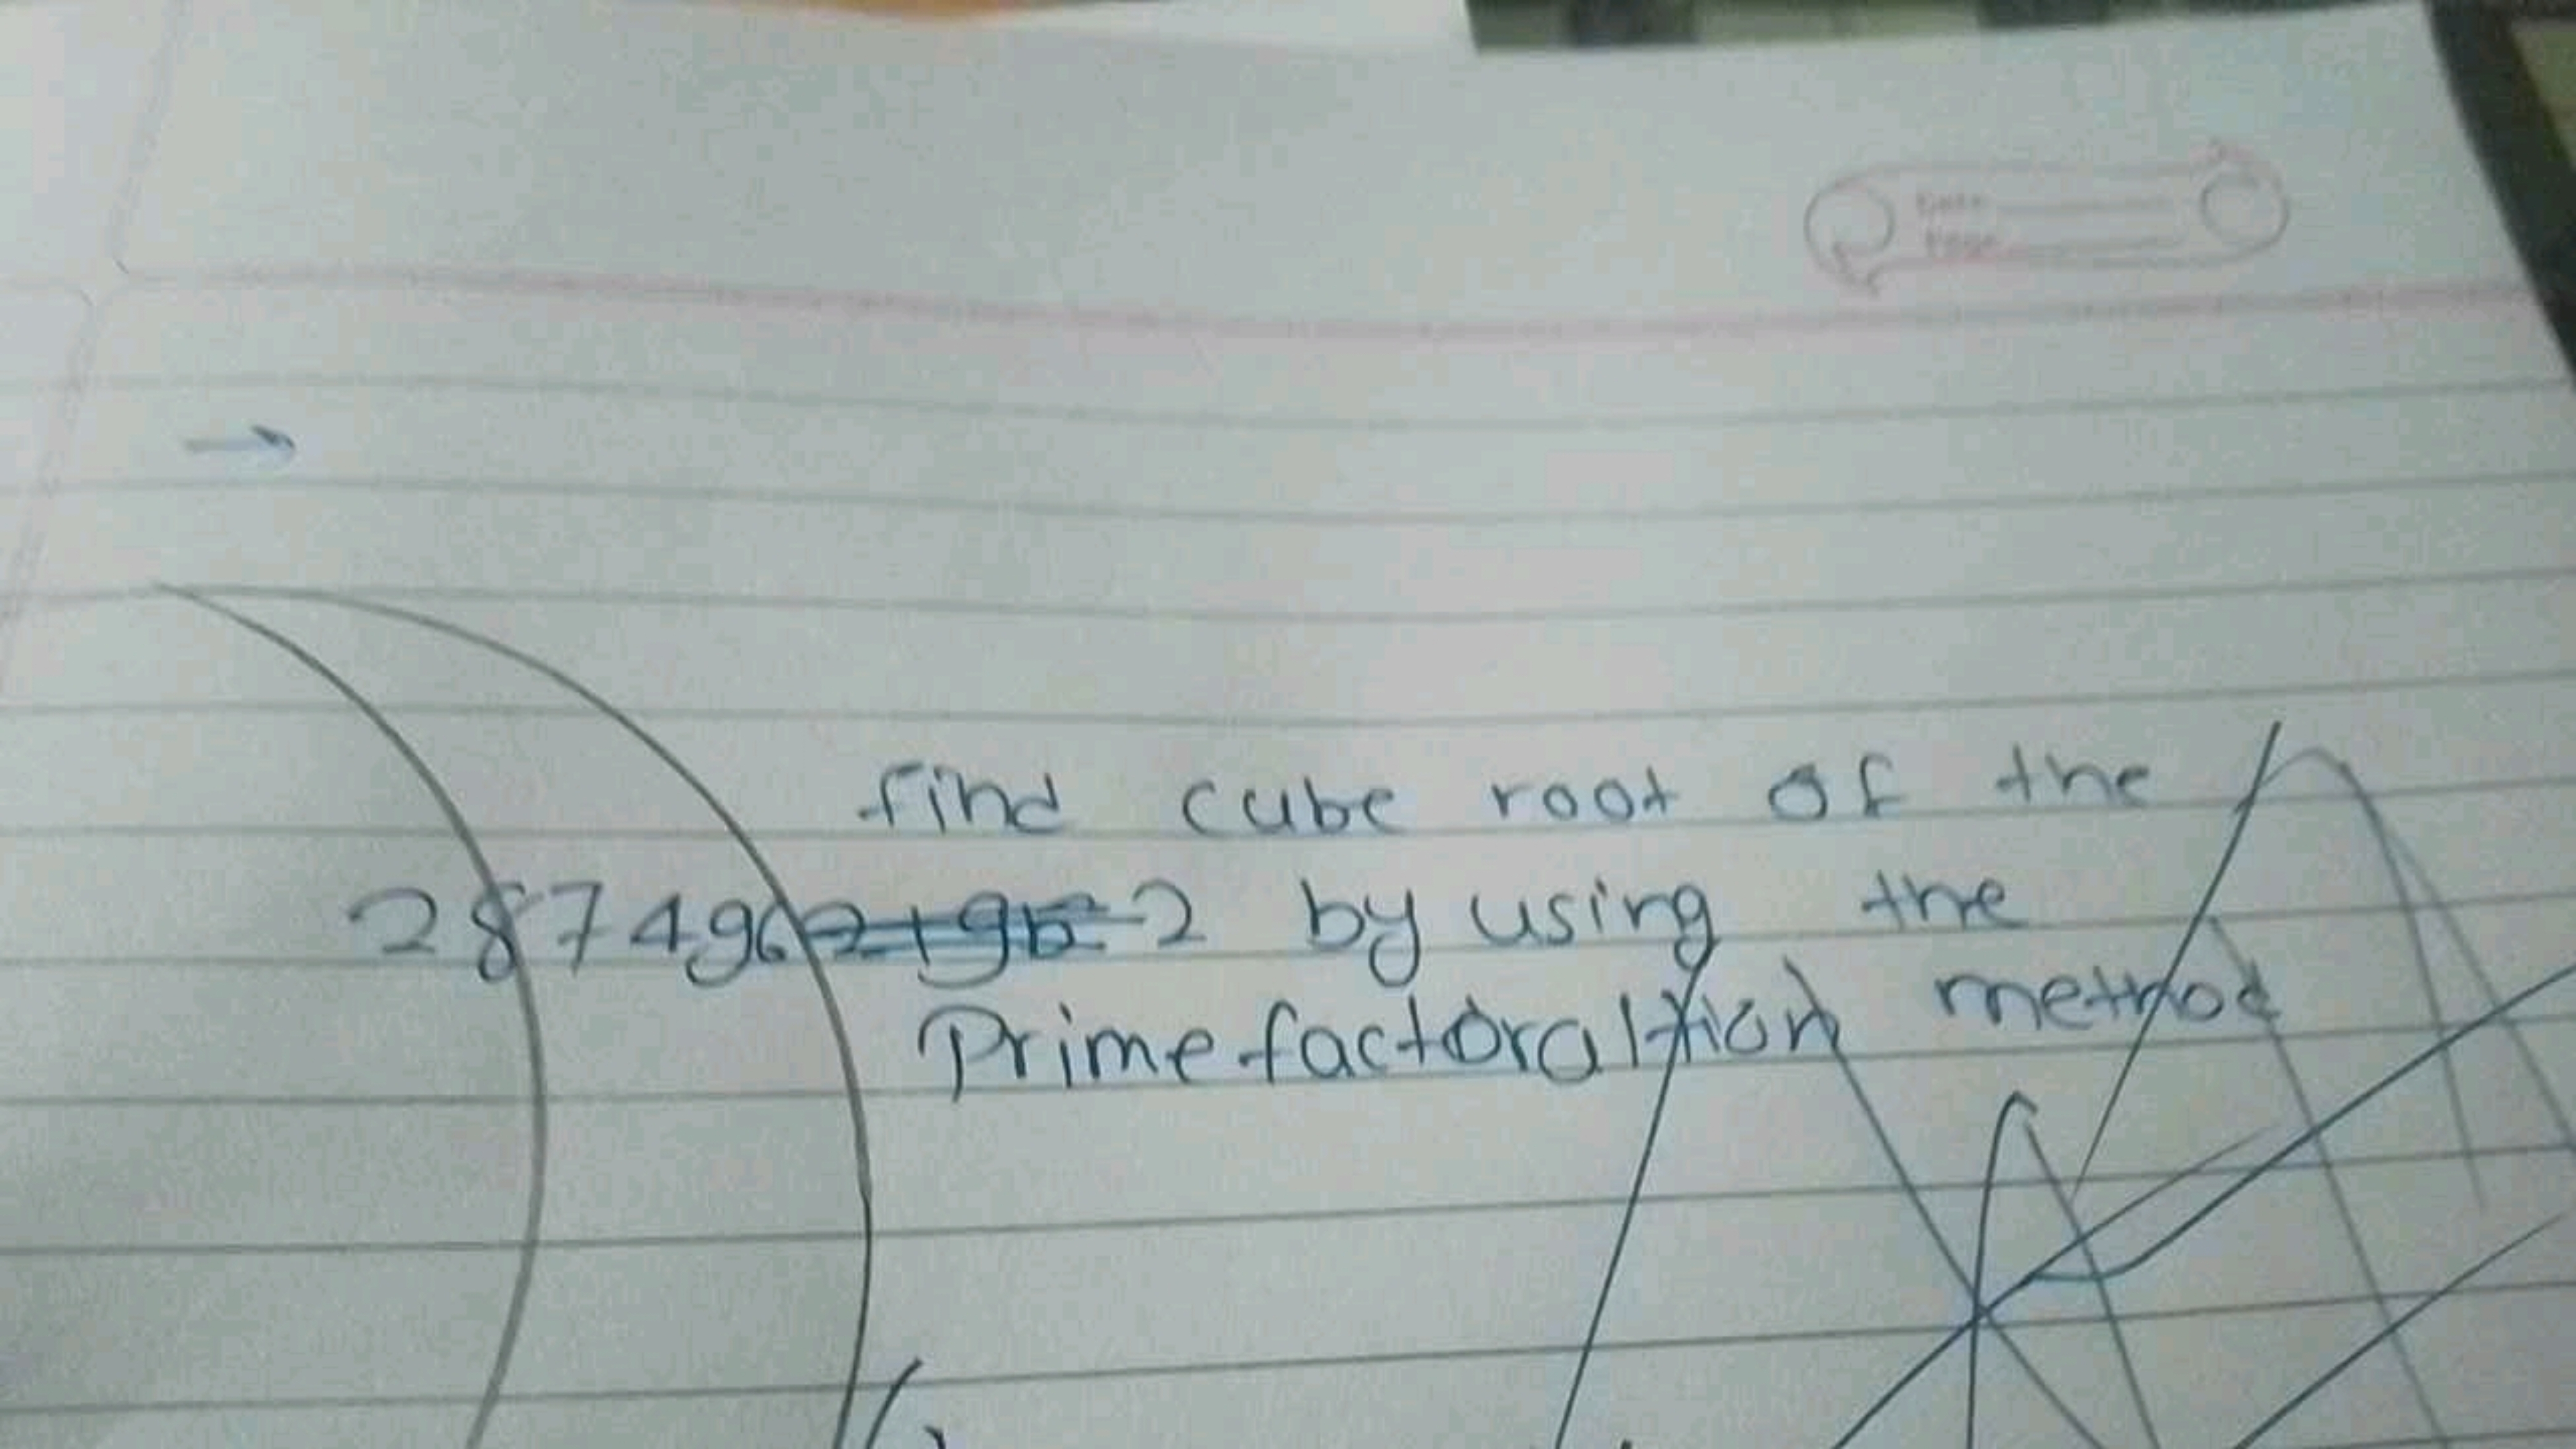 Date
Page
find cube root of the
2874962 by using the
Prime factoraltion method